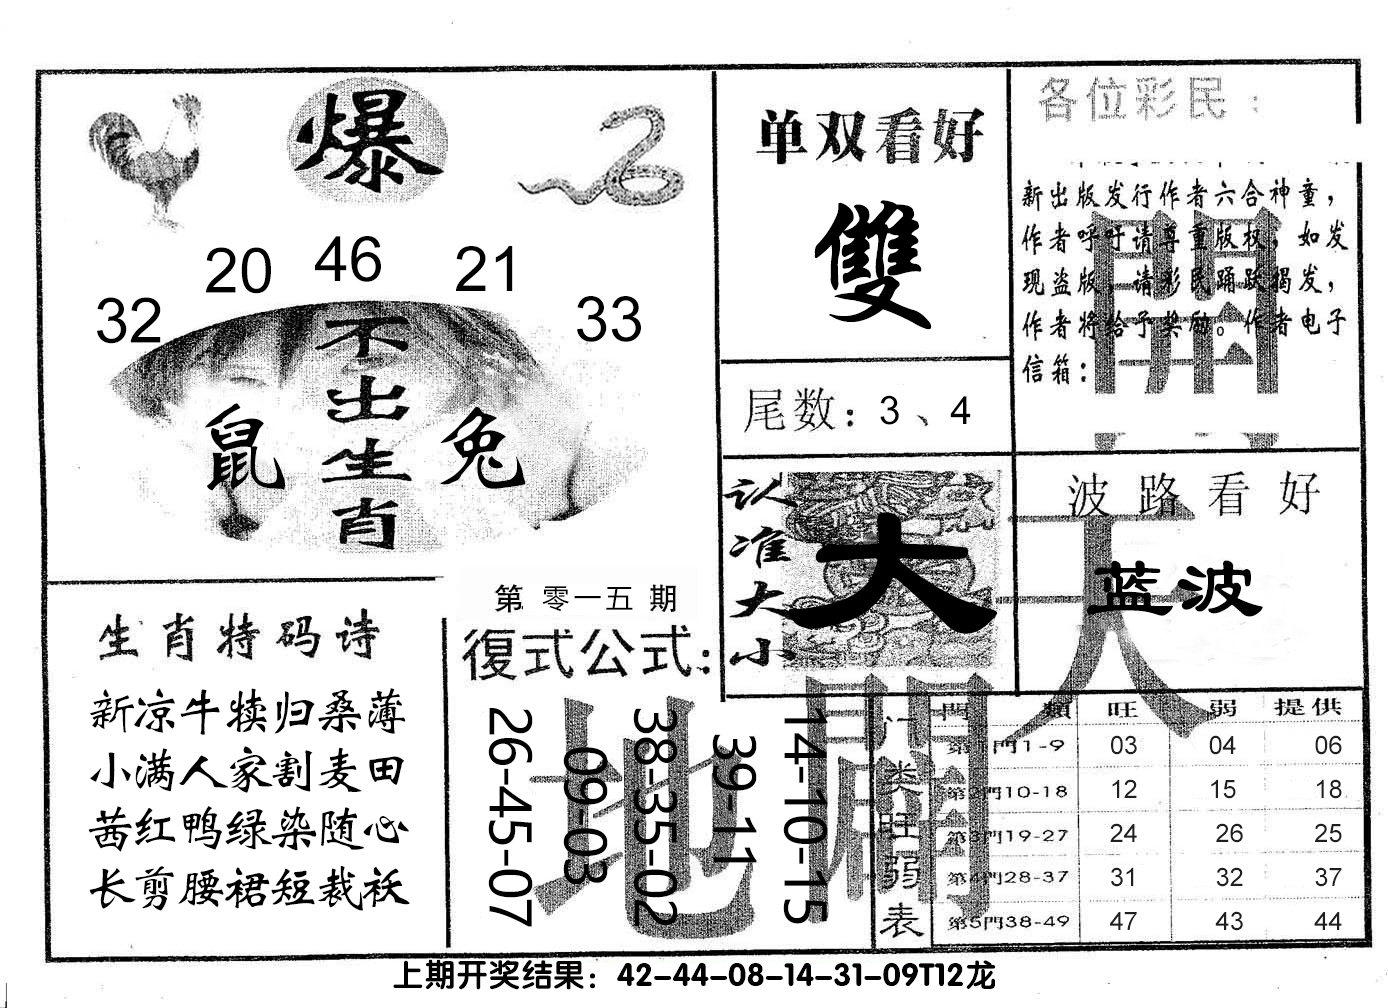 爆
20 46 21
32 33
不出生肖
鼠 兔
单双看好
雙
尾数：3、4
认准大小
大
各位彩民：
新出版发行作者六合神童，
作者呼吁请尊重版权，如发
现盗版，请彩民踊跃揭发，
作者将给予奖励。作者电子
信箱：
開
天
波路看好
蓝波
生肖特码诗
新凉牛犊归桑薄
小满人家割麦田
茜红鸭绿染随心
长剪腰裙短裁袄
第零一五期
復式公式：
地
開
26-45-07
09-03
38-35-02
39-11
14-10-15
门类旺弱表
門類 旺 弱 提供
第1門1-9 03 04 06
第2門10-18 12 15 18
第3門19-27 24 26 25
第4門28-37 31 32 37
第5門38-49 47 43 44
上期开奖结果：42-44-08-14-31-09T12龙